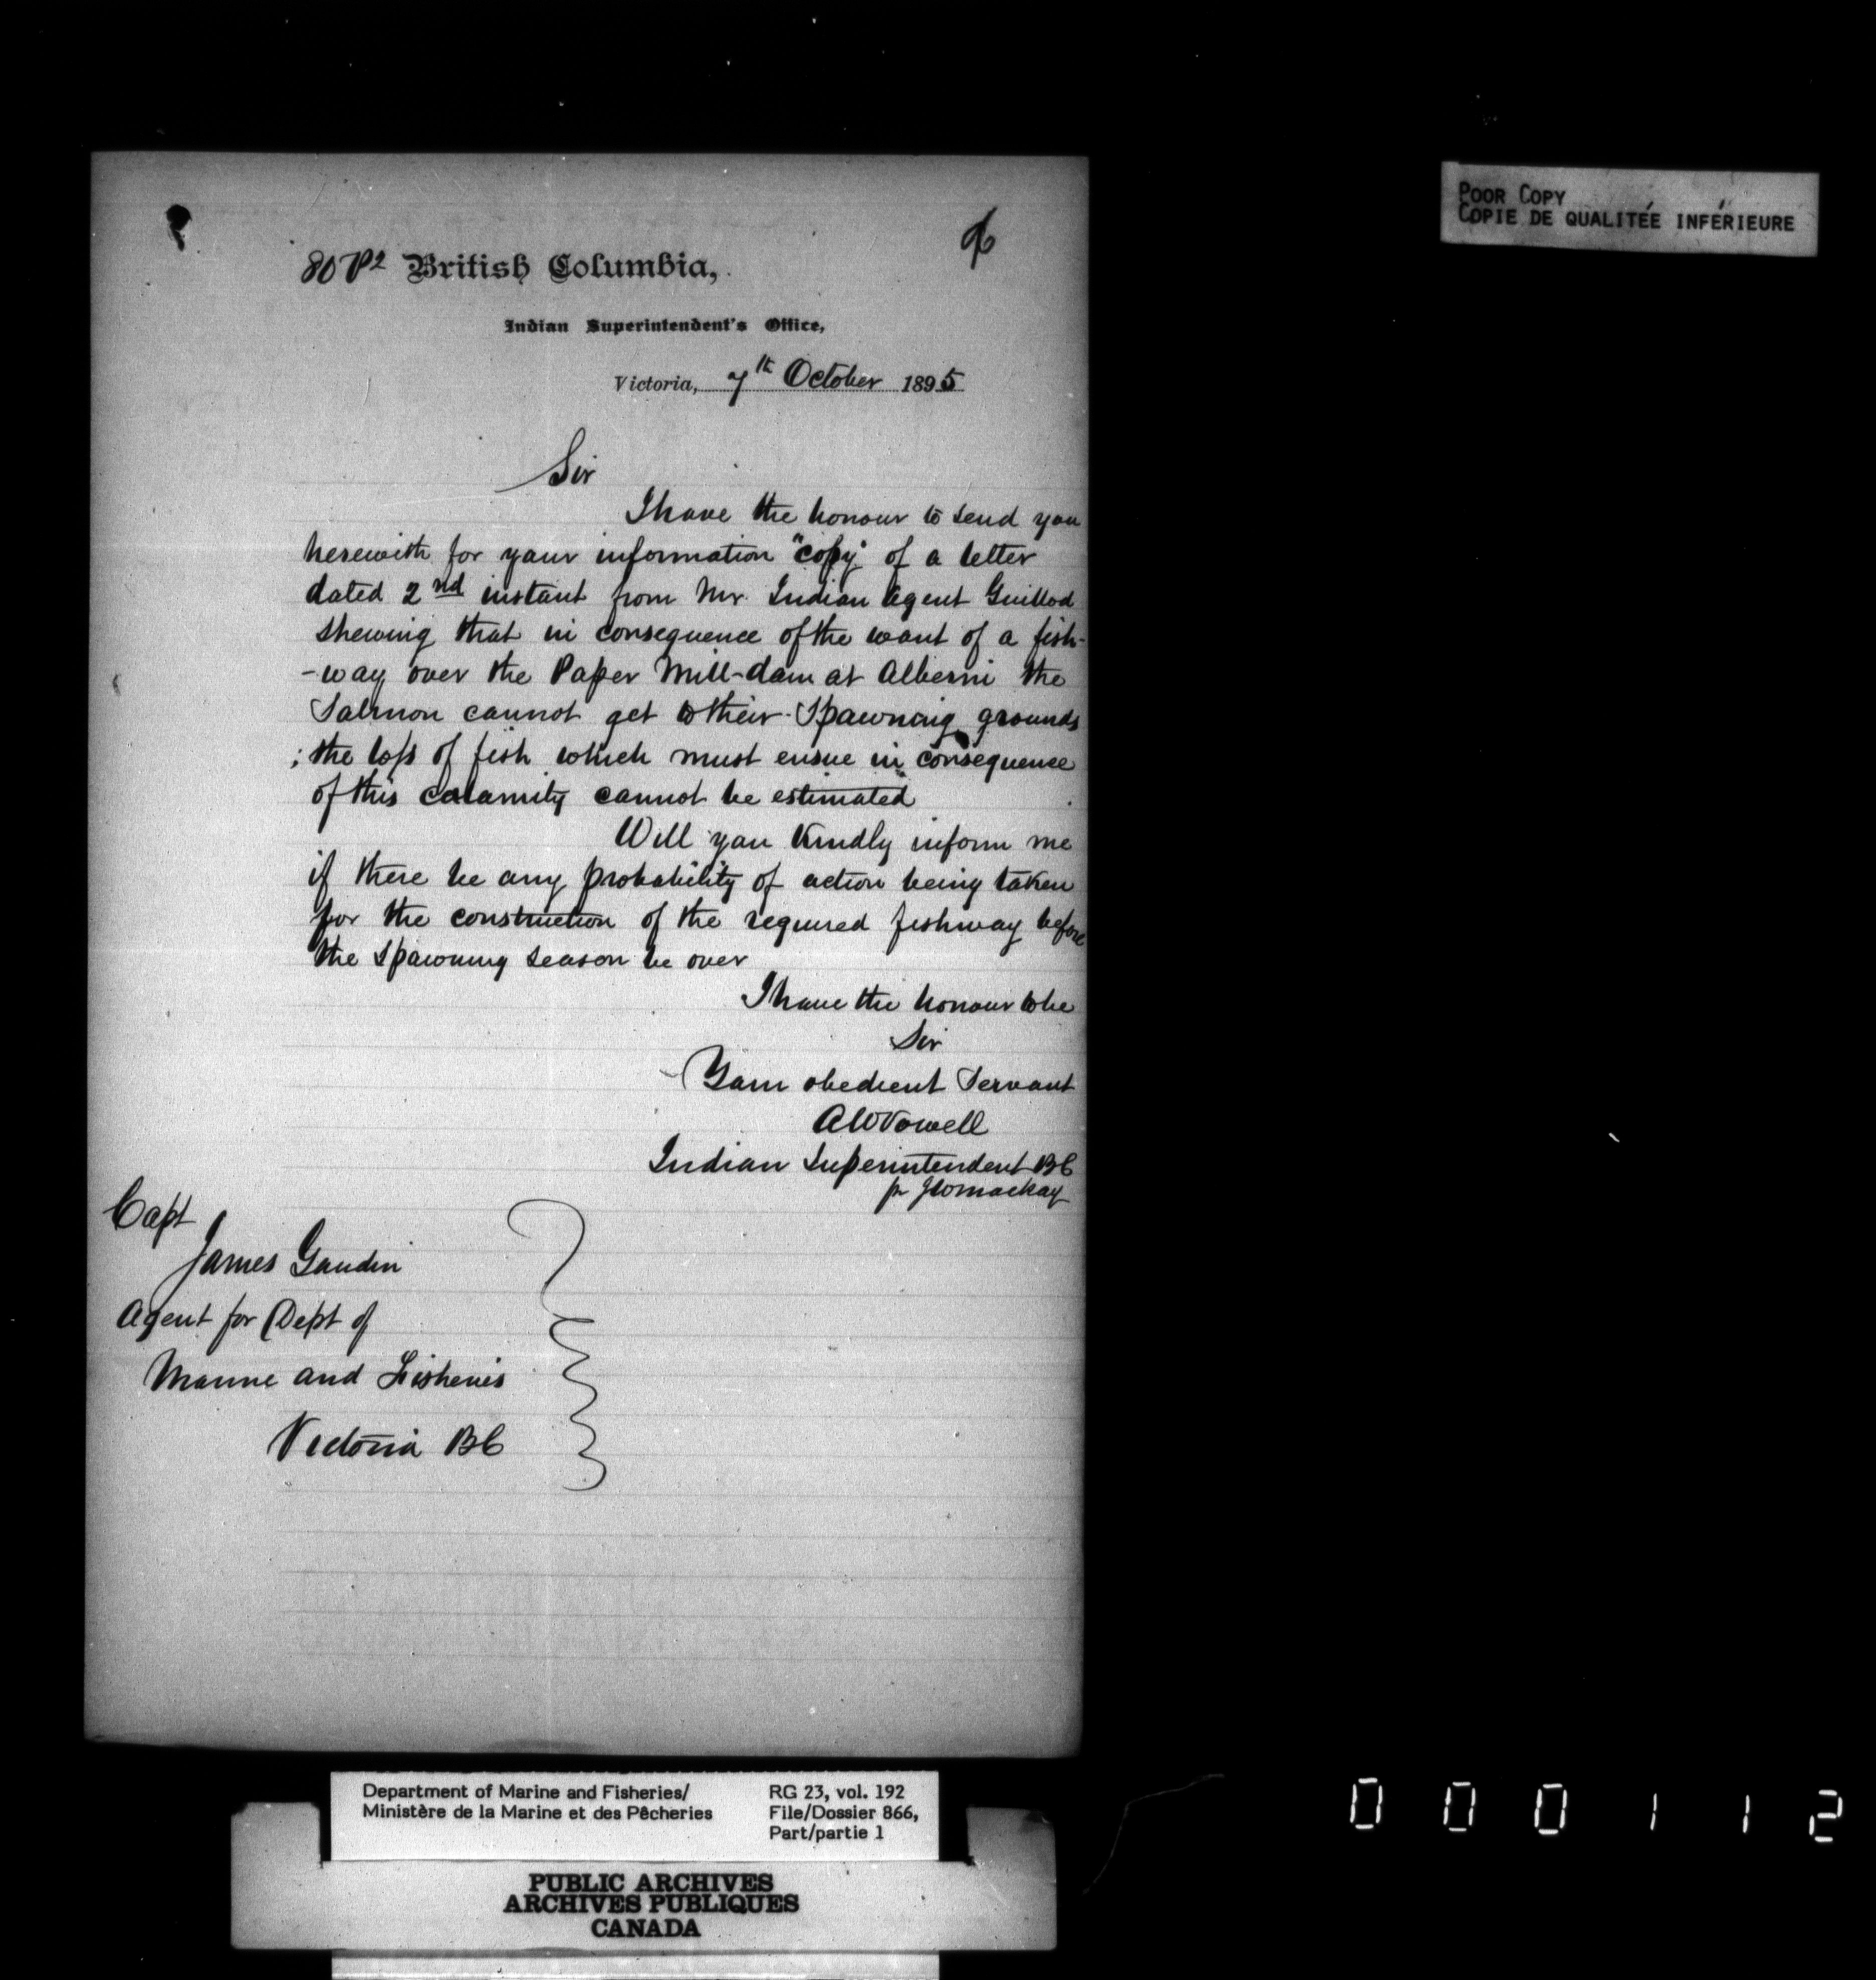 POOR COPY
COPIE DE QUALITÉE INFÉRIEURE
80 P2 British Columbia,
Indian Superintendent's Office,
Victoria, 7th October 1895
Sir
I have the honour to send you
herewith for your information "copy" of a letter
dated 2nd instant from Mr. Indian Agent Guillod
shewing that in consequence of the want of a fish-
-way over the Paper Mill-dam at Alberni the
Salmon cannot get to their Spawning grounds
; the loss of fish which must ensue in consequence
of this calamity cannot be estimated
Will you kindly inform me
if there be any probability of action being taken
for the construction of the required fishway before
the spawning season be over
I have the honour to be
Sir
Your obedient Servant
AWVowell
Indian Superintendent BC
pr JWMackay
Capt
James Gaudin
Agent for Dept of
Marine and Fisheries
Victoria BC
Department of Marine and Fisheries/
Ministère de la Marine et des Pêcheries
RG 23, vol. 192
File/Dossier 866,
Part/partie 1
PUBLIC ARCHIVES
ARCHIVES PUBLIQUES
CANADA
000112